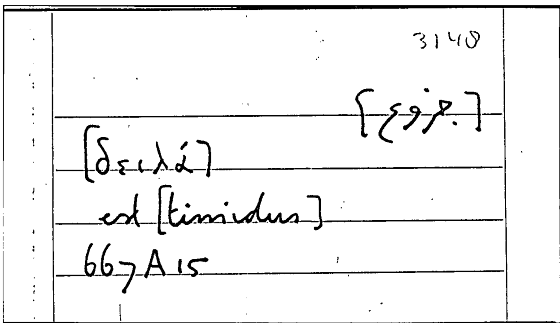 3148
[δειλά]
est [timidus]
667 A 15